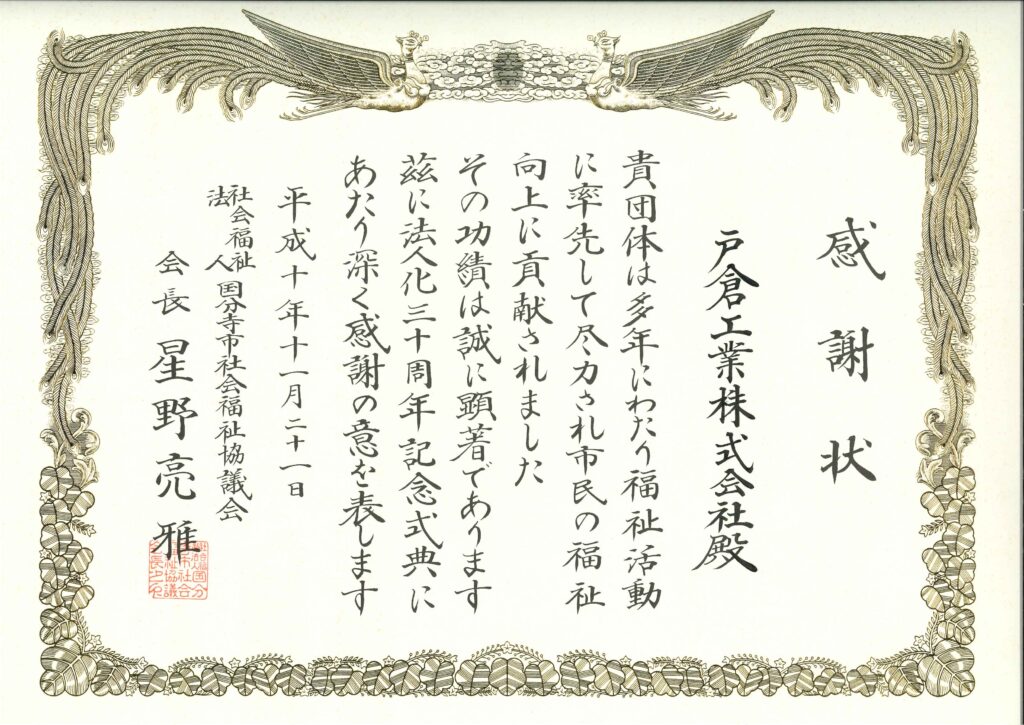 感謝状
戸倉工業株式会社殿
貴団体は多年にわたり福祉活動
に率先して尽力され市民の福祉
向上に貢献されました
その功績は誠に顕著であります
茲に法人化三十周年記念式典に
あたり深く感謝の意を表します
平成十年十一月二十一日
社会福祉法人国分寺市社会福祉協議会
会長星野亮雅